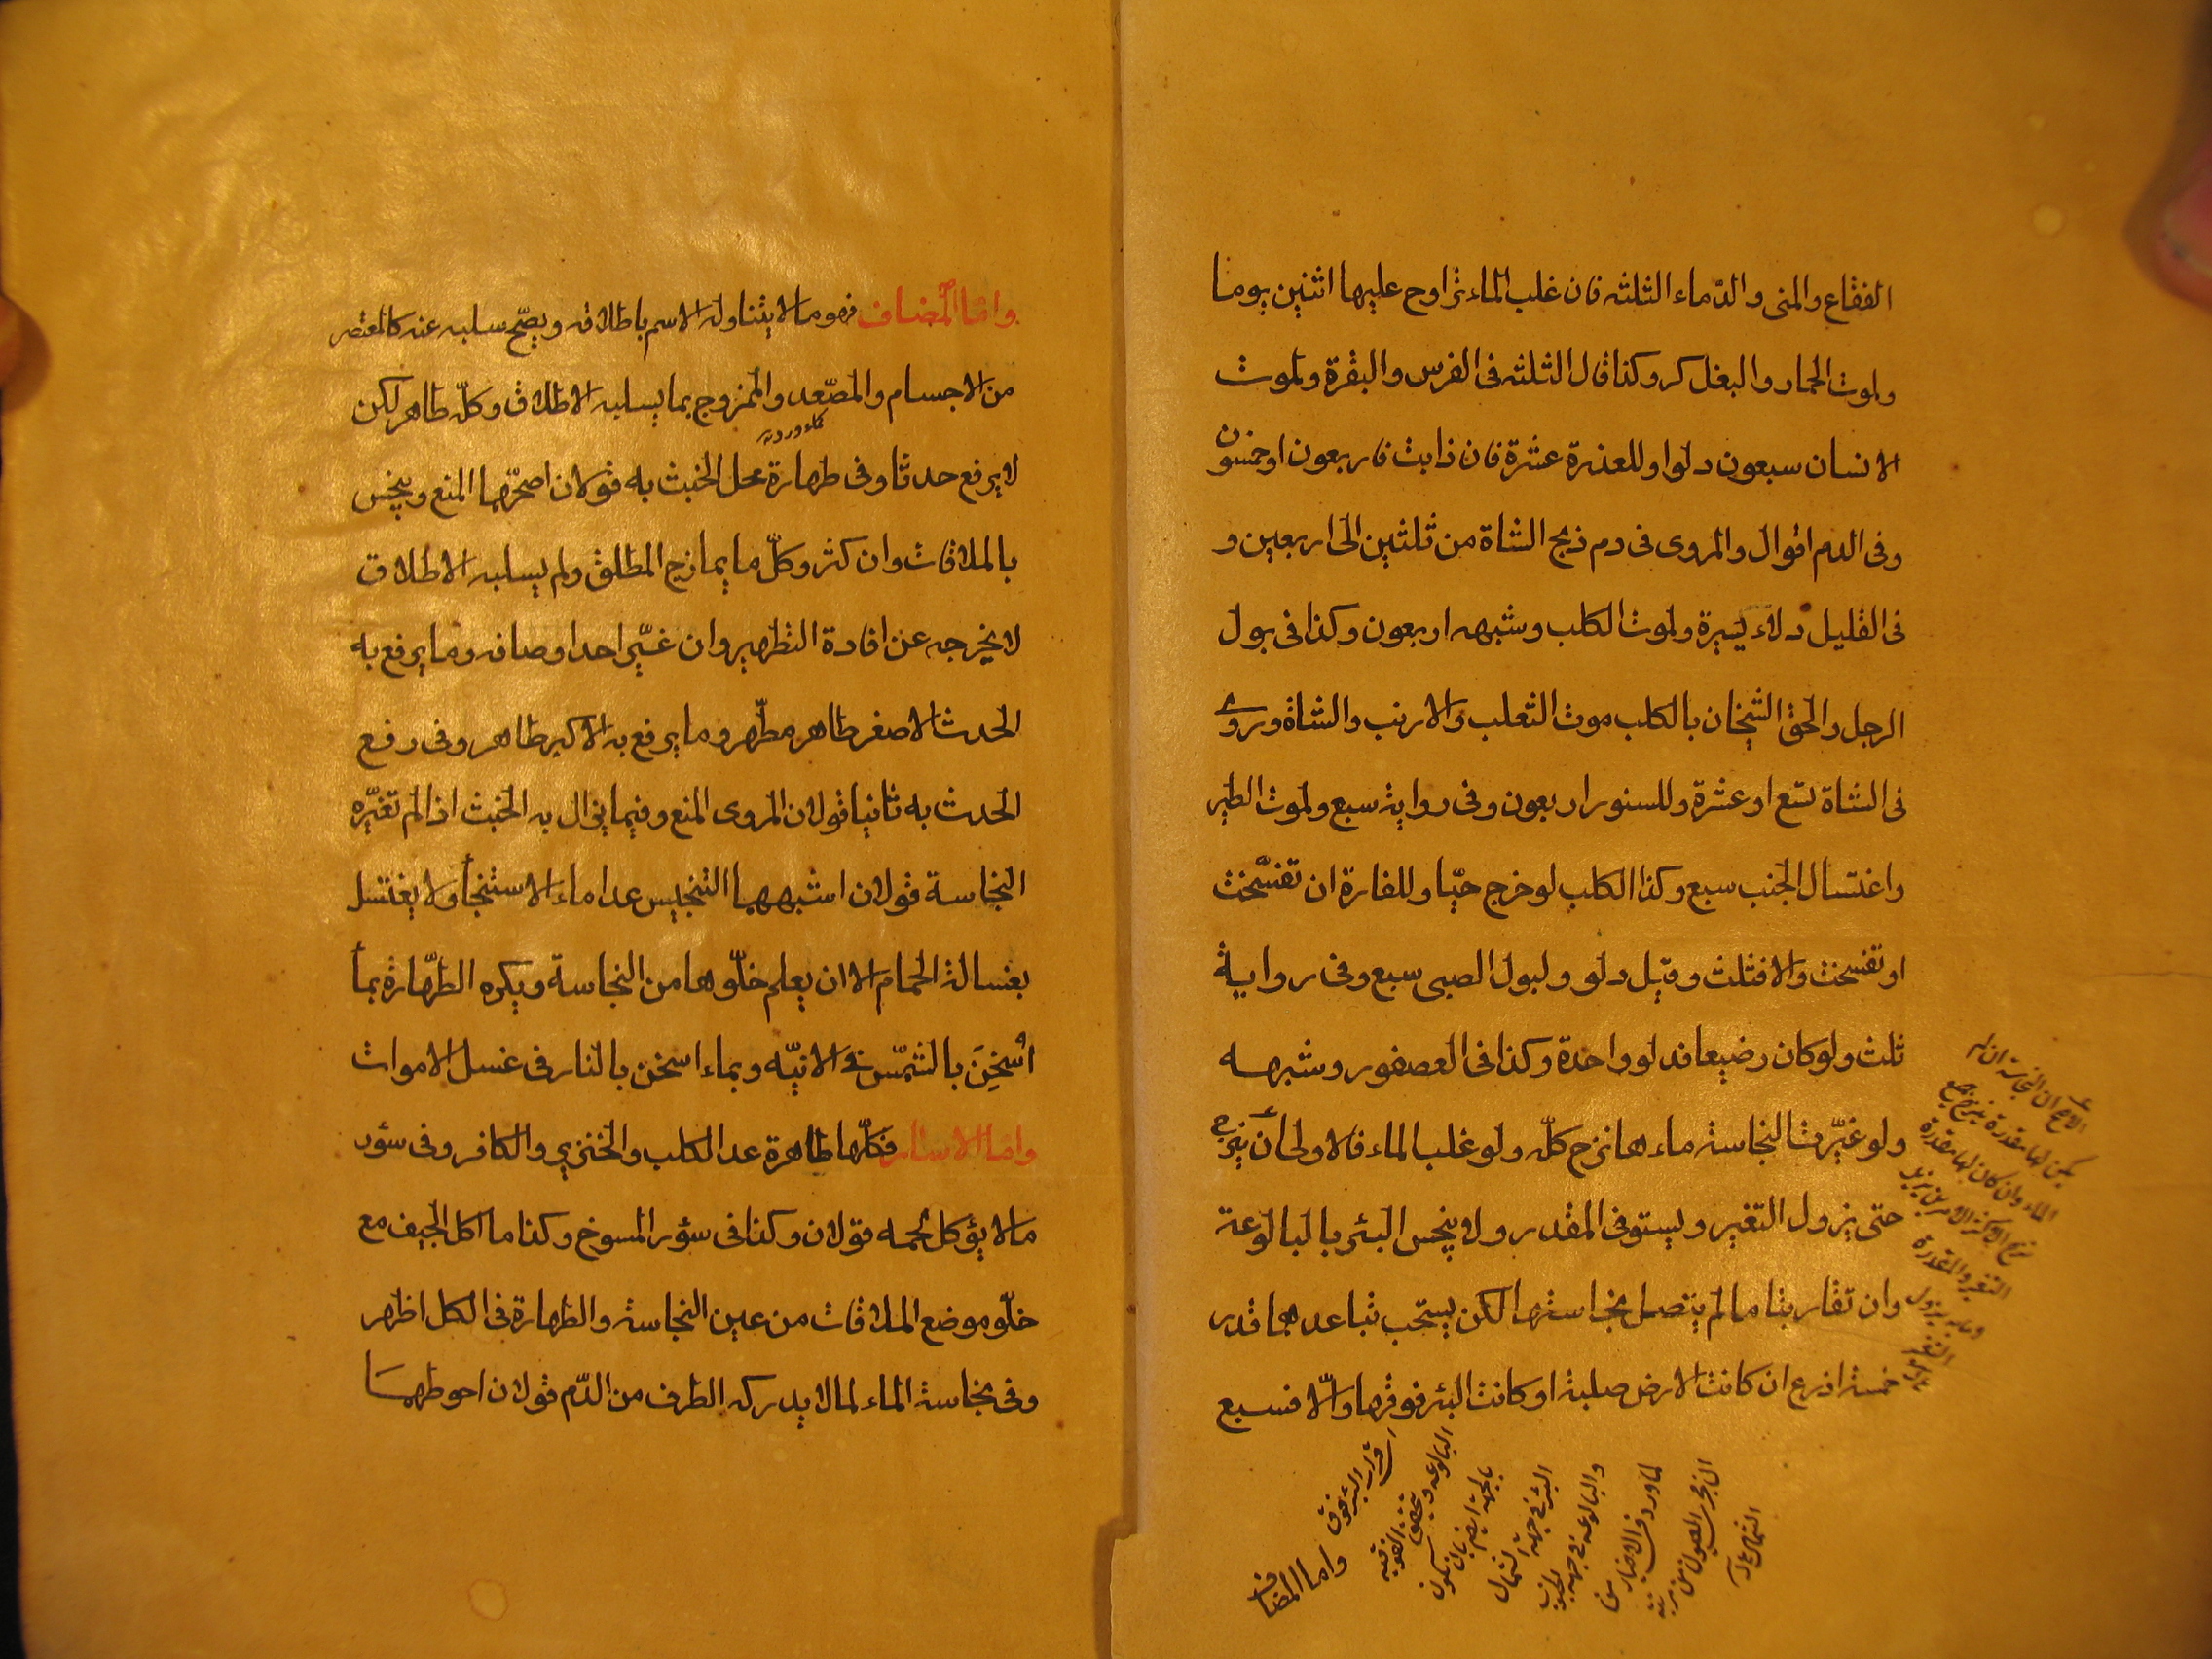 الفقاع والمنى والدّماء الثلثه فان غلب الماء تراوح عليها اثنين يوما
ولموت الحمار والبغل كر وكذا قال الثلثه فى الفرس والبقرة ولموت
الانسان سبعون دلوا وللعذرة عشرة فان ذابت فاربعون او خمسون
وفى الدم اقوال والمروى فى دم ذبح الشاة من ثلثين الى اربعين و
فى القليل دلاء يسيرة ولموت الكلب وشبهه اربعون وكذا فى بول
الرجل والحق الشيخان بالكلب موت الثعلب والارنب والشاة وروى
فى الشاة تسع او عشرة وللسنور اربعون وفى رواية سبع ولموت الطير
واغتسال الجنب سبع وكذا الكلب لو خرج حيّا وللفارة ان تفسّخت
او تفسخت والا فثلث وقيل دلو ولبول الصبى سبع وفى رواية
ثلث ولو كان رضيعا فدلو واحدة وكذا فى العصفور وشبهه
ولو غيّرت النجاسة ماءها نزح كلّه ولو غلب الماء فالاولى ان ينزح
حتى يزول التغير ويستوفى المقدر ولا ينجس البئر بالبالوعة
وان تقاربتا ما لم يتصل نجاستها لكن يستحب تباعدهما قدر
خمسة اذرع ان كانت الارض صلبة او كانت البئر فوقها والّا فسبع
الاصح ان النجاسة ان لم
يكن لها مقدرة ينزح جميع
الماء وان كان لها مقدرة
نزح اكثر الامرين
التغير والمقدرة
وما به يزول
التغير
البئر فوق
البالوعه
بالجهة بان تكون
البئر فى جهة الشمال
والبالوعه فى جهة الجنوب
لما ورد فى الاخبار من
ان مجرى العيون من
الشمال
واما المضاف
واما المُضاف فهو ما لا يتناوله الاسم باطلاقه ويصّح سلبه عنه كالمعتصر
من الاجسام والمصّعد والممزوج بما يسلبه الاطلاق وكلّه طاهر لكن
كماء ورد
لا يرفع حدثا وفى طهارة محل الخبث به قولان اصحّهما المنع وينجس
بالملاقات وان كثر وكلّ ما يمازج المطلق ولم يسلبه الاطلاق
لا يخرجه عن افادة التطهير وان غيّر احد اوصافه وما يرفع به
الحدث الاصغر طاهر مطّهر وما يرفع به الاكبر طاهر وفى رفع
الحدث به ثانيا قولان المروى المنع وفيما يزال به الخبث اذا لم تغيّره
النجاسة قولان اشبههما التنجيس عدا ماء الاستنجاء ولا يغتسل
بغسالة الحمام الا ان يعلم خلّوها من النجاسة ويكره الطّهارة بماء
اُسْخِنَ بالشمّس فى الانيّه وبماء اسخن بالنار فى غسل الاموات
واما الاسار فكلّها طاهرة عدا الكلب والخنزير والكافر وفى سؤر
ما لا يؤكل لحمه قولان وكذا فى سؤر المسوخ وكذا ما اكل الجيف مع
خلّو موضع الملاقات من عين النجاسة والطهارة فى الكل اظهر
وفى نجاسة الماء لما لا يدركه الطرف من الدّم قولان احوطهما